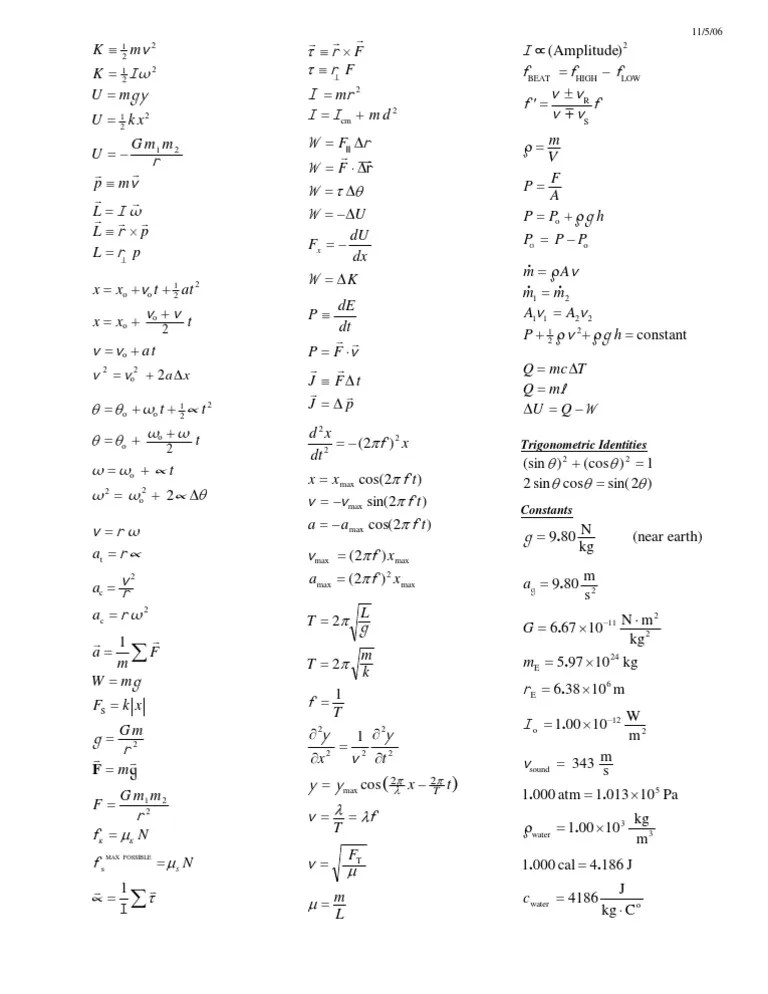 11/5/06
K ≡ ½ mv²
K = ½ Iω²
U = mgy
U = ½ kx²
U = − G m₁ m₂ / r
p⃗ ≡ mv⃗
L⃗ = I ω⃗
L⃗ ≡ r⃗ × p⃗
L = r⊥ p
x = xₒ + vₒt + ½ at²
x = xₒ + (vₒ + v)/2 t
v = vₒ + at
v² = vₒ² + 2aΔx
θ = θₒ + ωₒt + ½ ∝ t²
θ = θₒ + (ωₒ + ω)/2 t
ω = ωₒ + ∝ t
ω² = ωₒ² + 2 ∝ Δθ
v = r ω
aₜ = r ∝
a_c = v²/r
a_c = r ω²
a⃗ = 1/m ∑ F⃗
W = mg
F_S = k|x|
g = G m / r²
F⃗ = mg⃗
F = G m₁ m₂ / r²
f_κ = μ_κ N
f_s ^MAX POSSIBLE = μ_s N
∝⃗ = 1/I ∑ τ⃗
τ⃗ ≡ r⃗ × F⃗
τ ≡ r⊥ F
I = mr²
I = I_cm + m d²
W = F∥ Δr
W = F⃗ · Δr⃗
W = τ Δθ
W = −ΔU
Fₓ = − dU/dx
W = ΔK
P ≡ dE/dt
P = F⃗ · v⃗
J⃗ ≡ F⃗Δt
J⃗ = Δp⃗
d²x/dt² = −(2πf)² x
x = x_max cos(2π f t)
v = −v_max sin(2π f t)
a = −a_max cos(2π f t)
v_max = (2πf)x_max
a_max = (2πf)² x_max
T = 2π √(L/g)
T = 2π √(m/k)
f = 1/T
∂²y/∂x² = 1/v² ∂²y/∂t²
y = y_max cos(2π/λ x − 2π/T t)
v = λ/T = λf
v = √(F_T/μ)
μ = m/L
I ∝ (Amplitude)²
f_BEAT = f_HIGH − f_LOW
f′ = (v ± v_R)/(v ∓ v_S) f
ρ = m/V
P = F/A
P = Pₒ + ρgh
Pₒ = P − Pₒ
ṁ = ρAv
ṁ₁ = ṁ₂
A₁v₁ = A₂v₂
P + ½ ρv² + ρgh = constant
Q = mcΔT
Q = mℓ
ΔU = Q − W
Trigonometric Identities
(sin θ)² + (cos θ)² = 1
2 sin θ cos θ = sin(2θ)
Constants
g = 9.80 N/kg (near earth)
a_g = 9.80 m/s²
G = 6.67 × 10⁻¹¹ N · m²/kg²
m_E = 5.97 × 10²⁴ kg
r_E = 6.38 × 10⁶ m
Iₒ = 1.00 × 10⁻¹² W/m²
v_sound = 343 m/s
1.000 atm = 1.013 × 10⁵ Pa
ρ_water = 1.00 × 10³ kg/m³
1.000 cal = 4.186 J
c_water = 4186 J/(kg · C°)